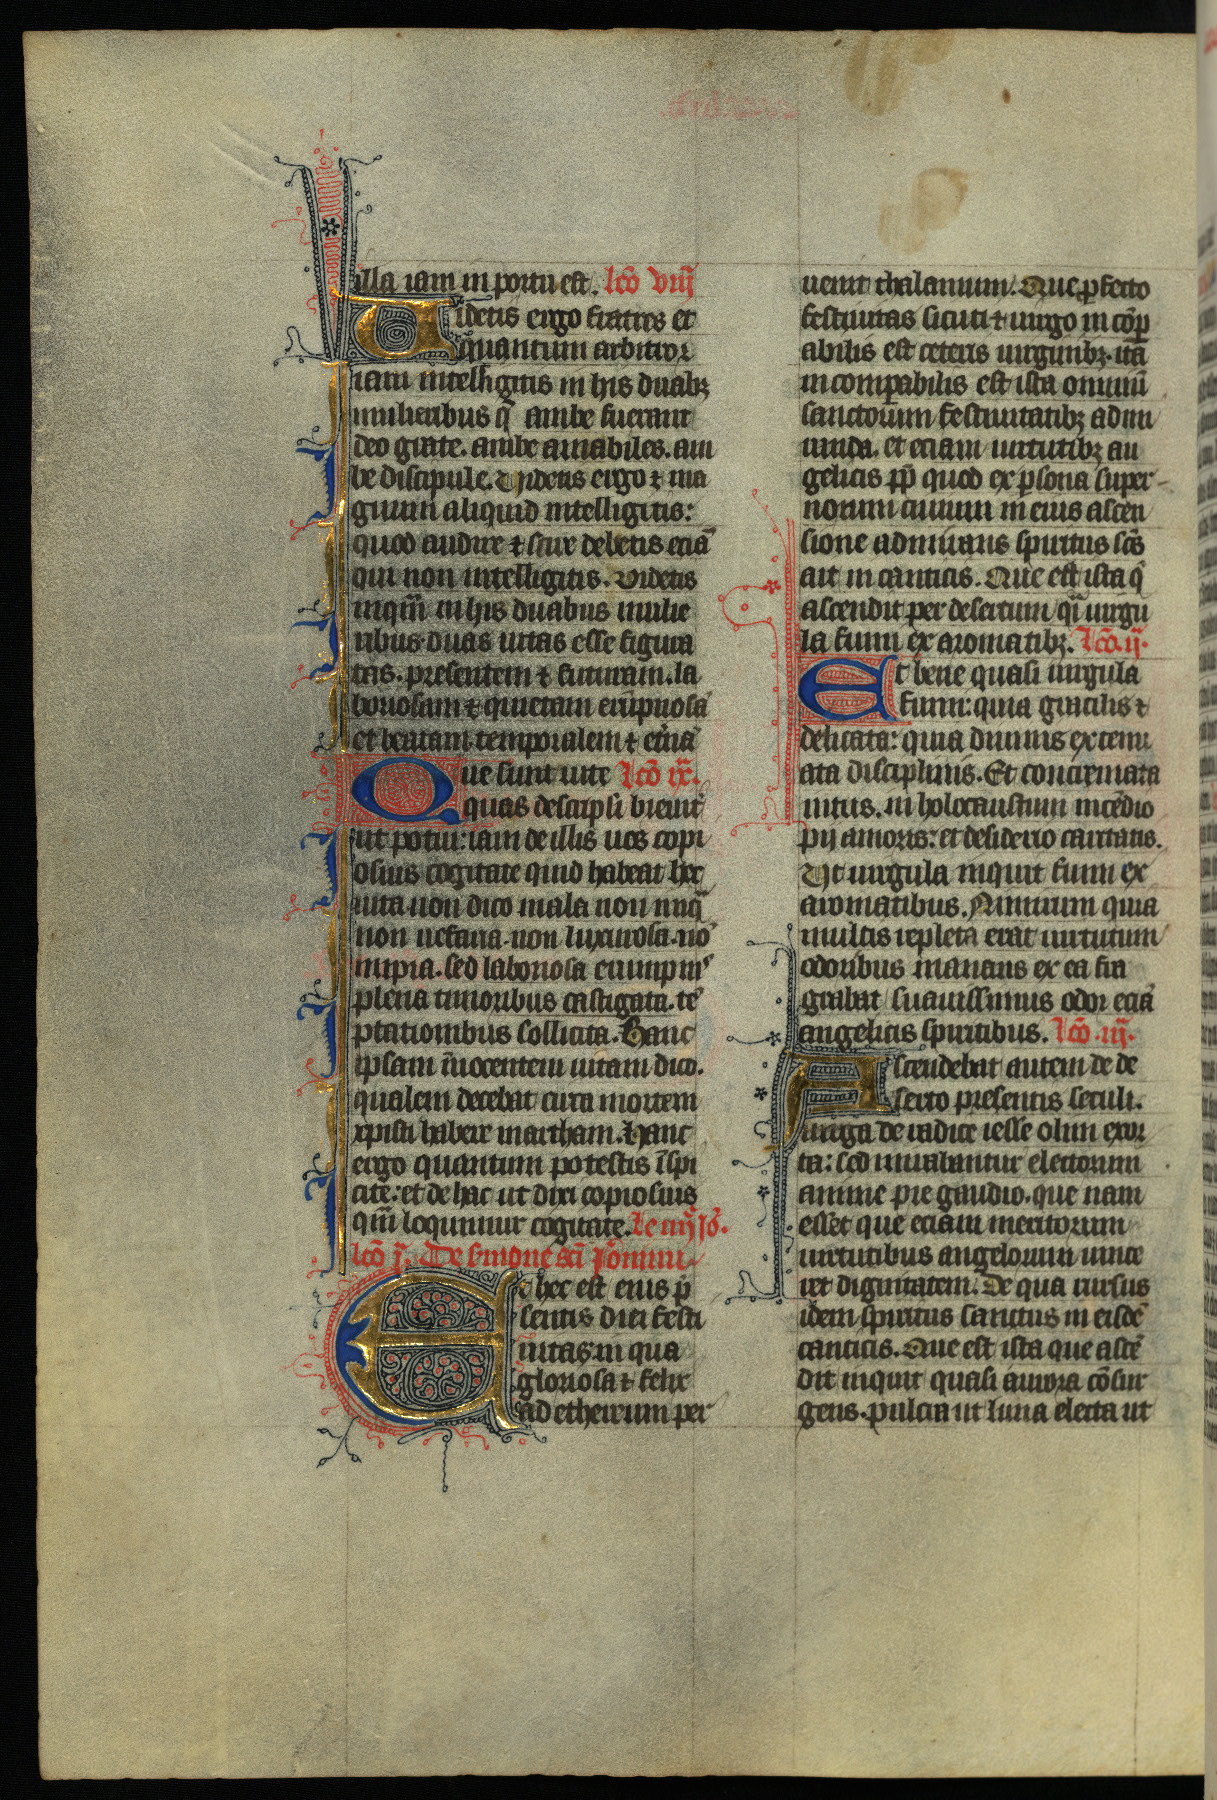 illa iam in portu est. lcō viij
Videtis ergo fratres et
quantum arbitror
iam intelligitis in his duabꝫ
mulieribus q̄ ambe fuerant
deo grate. ambe amabiles. am
be discipule. Videtis ergo ⁊ ma
gnum aliquid intelligitis:
quod audire ⁊ scire debetis eciā
qui non intelligitis. Videtis
inqm̄ in his duabus mulie
ribus duas uitas esse figura
tas. presentem ⁊ futuram. la
boriosam ⁊ quietam erūpnosā
et beatam. temporalem ⁊ et̄nā
Que sunt uite lcō ix.
quas descripsi breuit̄
ut potui: iam de illis uos copi
osius cogitate quid habeat hec
uita non dico mala non iniq̄
non nefaria. non luxuriosa. nō
inpia. sed laboriosa erumpnis
plena timoribus castigata. tē
ptationibus sollicita. Hanc
ipsam īnocentem uitam dico.
qualem decebat cura mortem
xpisti habere martham. Hanc
ergo quantum potestis īspi
cite: et de hac ut dixi copiosius
qm̄ loquimur cogitate. Ie
lcō j. De s̄mone sc̄i
Et hec est eius p̄
sentis diei festi
uitas in qua
gloriosa ⁊ felix
ad ethereum per
uenit thalamum. Que ꝓfecto
festiuitas sicuti ⁊ uirgo in cōp
abilis est ceteris uirginibꝫ. ita
incomꝑabilis est ista omniū
sanctorum festiuitatibꝫ admi
randa. et eciam uirtutibꝫ an
gelicis ꝓp̄ quod ex ꝑsona super
norum ciuium in eius ascen
sione admirans spiritus sc̄s
ait in canticis. Que est ista q̄
ascendit per desertum qi uirgu
la fumi ex aromatibꝫ. lcō. ij.
Et bene quasi uirgula
fumi: quia gracilis ⁊
delicata: quia diuinis extenu
ata disciplinis. Et concremata
intus. in holocaustum incēdio
pij amoris: et desiderio caritatis.
Vt uirgula inquit fumi ex
aromatibus. Nimirum quia
multis repleta erat uirtutum
odoribus manans ex ea fra
grabat suauissimus odor eciā
angelicis spiritibus. lcō. iij.
Ascendebat autem de de
serto presentis seculi.
uirga de radice iesse olim exor
ta: sed mirabantur electorum
anime pre gaudio. que nam
esset que eciam meritorum
uirtutibus angelorum uince
ret dignitatem. De qua rursus
idem spiritus sanctus in eisdē
canticis. Que est ista que ascē
dit inquit quasi aurora cōsur
gens. pulcra ut luna electa ut